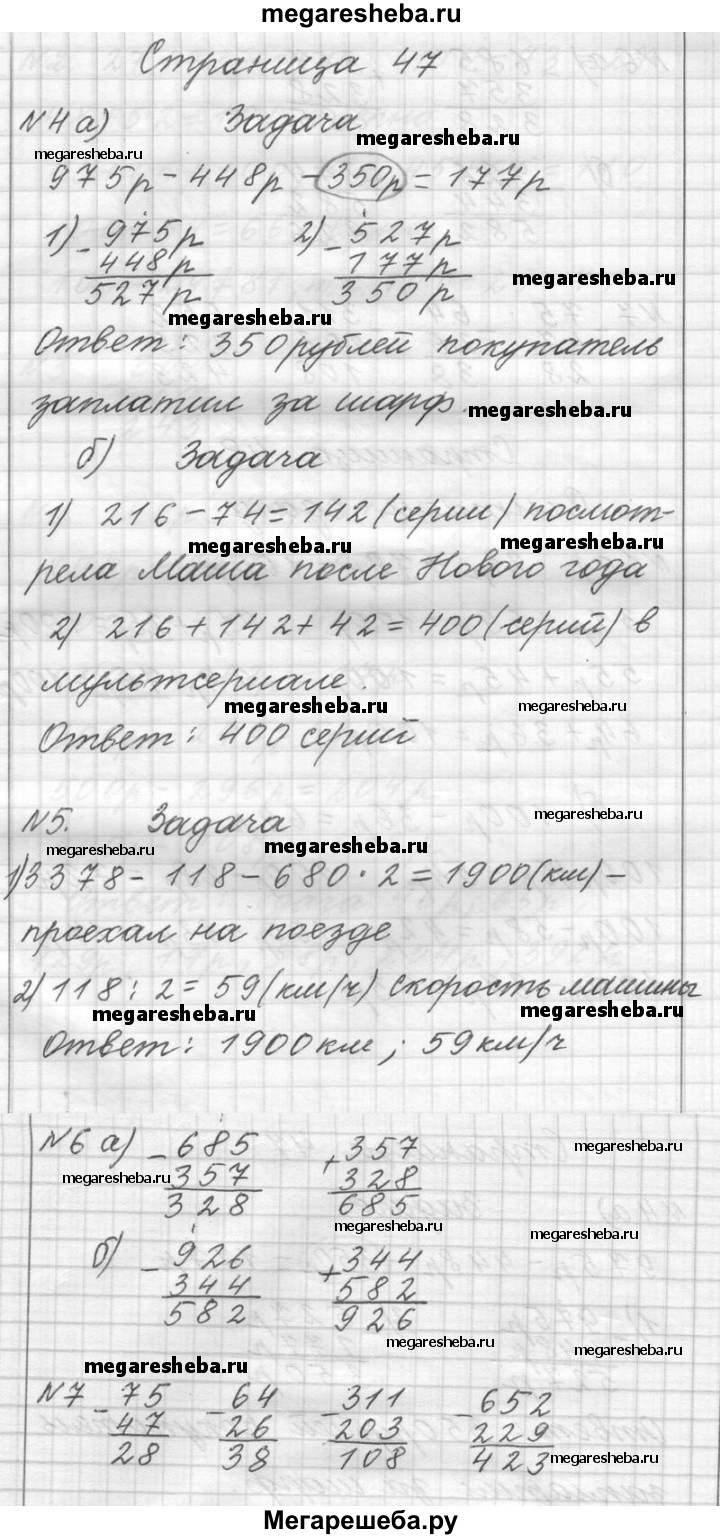 megaresheba.ru
Страница 47
№4 а) Задача
megaresheba.ru
megaresheba.ru
975р - 448р - 350р = 177р
1) - 975р 2) - 527р
448р 177р
megaresheba.ru
527р 350р
megaresheba.ru
Ответ: 350 рублей покупатель
заплатил за шарф.
megaresheba.ru
б) Задача
1) 216 - 74 = 142 (серии) посмот-
megaresheba.ru megaresheba.ru
рела Маша после Нового года
2) 216 + 142 + 42 = 400 (серий) в
мультсериале.
megaresheba.ru megaresheba.ru
Ответ: 400 серий
№5. Задача
megaresheba.ru
megaresheba.ru
1) 3378 - 118 - 680 · 2 = 1900 (км) -
проехал на поезде
2) 118 : 2 = 59 (км/ч) скорость машины
megaresheba.ru megaresheba.ru
Ответ: 1900 км; 59 км/ч
№6 а) - 685 + 357
megaresheba.ru
357 328
megaresheba.ru
328 685
megaresheba.ru
megaresheba.ru
б) - 926 + 344
344 582
582 926
megaresheba.ru
megaresheba.ru
megaresheba.ru
№7 - 75 - 64 - 311 - 652
47 26 203 229
28 38 108 423
megaresheba.ru
Мегарешеба.ру